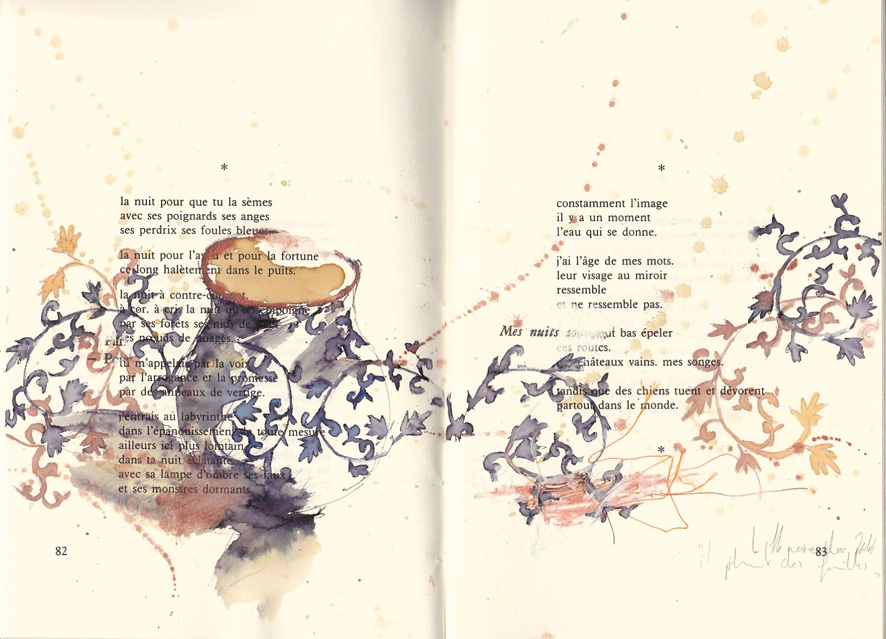 *
la nuit pour que tu la sèmes
avec ses poignards ses anges
ses perdrix ses foules bleues.
la nuit pour l'a et pour la fortune
ce long halètement dans le puits.
la nuit à contre-courant.
à cor. à cri. la nuit
par ses forêts ses nids de
ses nœuds de nuages.
tu m'appelais par la voix
par l'arrogance et la promesse
par des anneaux de vertige.
j'entrais au labyrinthe
dans l'épanouissement de toute mesure
ailleurs ici plus lointain
dans ta nuit éclatante
avec sa lampe d'ombre ses faux
et ses monstres dormants.
82
*
constamment l'image
il y a un moment
l'eau qui se donne.
j'ai l'âge de mes mots.
leur visage au miroir
ressemble
et ne ressemble pas.
Mes nuits sont tout bas épeler
ces routes.
châteaux vains. mes songes.
tandis que des chiens tuent et dévorent
partout dans le monde.
*
83
"il pleut des feuilles"